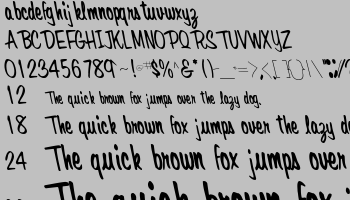 abcdefghijklmnopqrstuvwxyz
ABCDEFGHIJKLMNOPQRSTUVWXYZ
0123456789
12 The quick brown fox jumps over the lazy dog.
18 The quick brown fox jumps over the lazy
24 The quick brown fox jumps over
The quick brown fox